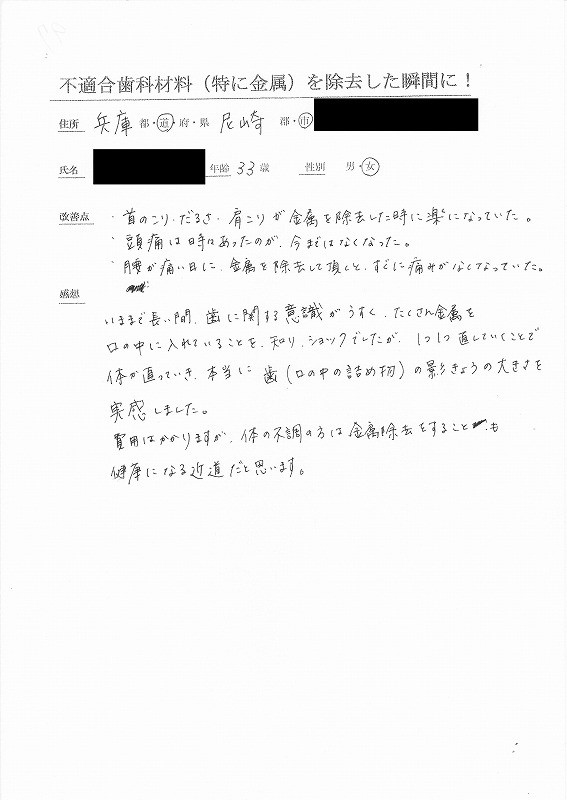 不適合歯科材料（特に金属）を除去した瞬間に！
住所 兵庫 都・道・府・県 尼崎 郡・市
氏名 年齢 33 歳 性別 男・女
改善点 ・首のこり・だるさ・肩こりが金属を除去した時に楽になっていた。
・頭痛は時々あったのが、今まではなくなった。
・腰が痛い日に、金属を除去して頂くと、すぐに痛みがなくなっていた。
感想
いままで長い間、歯に関する意識がうすく、たくさん金属を
口の中に入れていることを、知り、ショックでしたが、1つ1つ直していくことで
体が直っていき、本当に 歯（口の中の詰め物）の影きょうの大きさを
実感しました。
費用はかかりますが、体の不調の方は金属除去をすることも
健康になる近道だと思います。